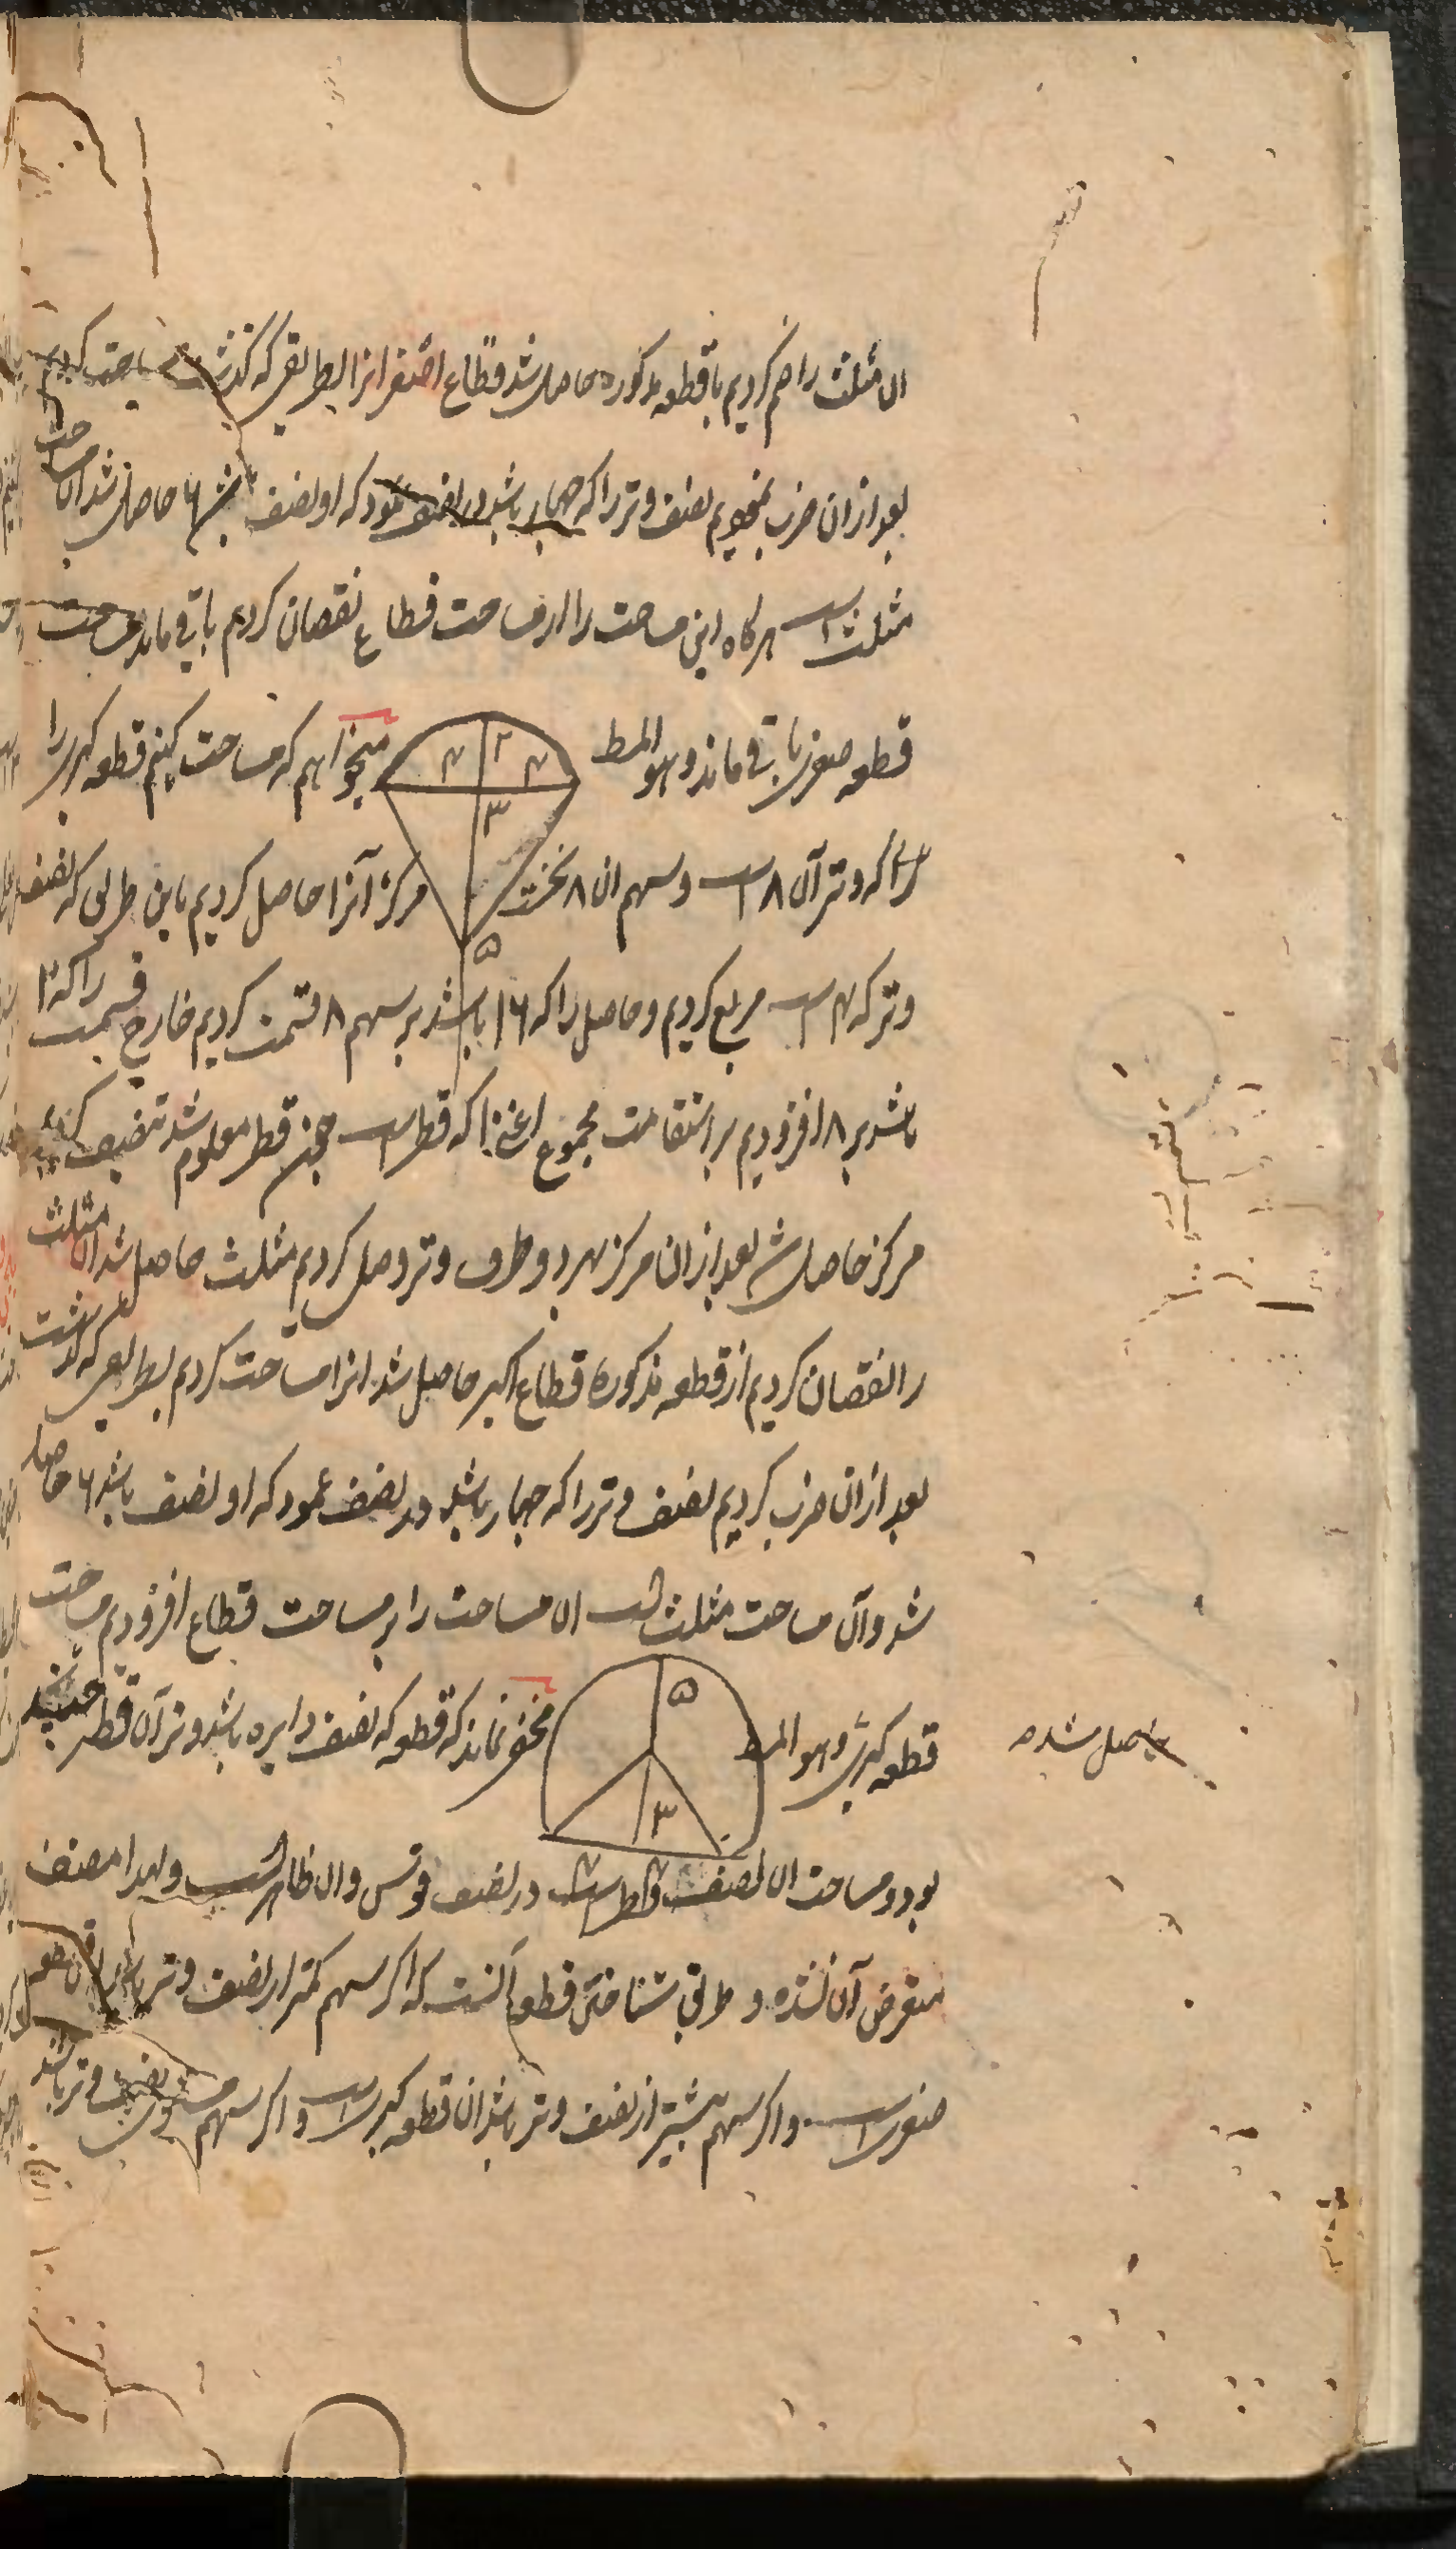 ان مثلث را ضم کردیم با قطعه مذکوره حاصل شد قطاع اصغر انرا بطریقی که گذشت مساحت کردیم
بعد از ان ضرب نمودیم نصف وتر را که چهار باشد در نصف عمود که او نصف باشد ۶ حاصل شد ان مساحت
مثلث است هرکاه این مساحت را از مساحت قطاع نقصان کردیم باقی ماند مساحت
قطعه صغری باقی ماند و هو المط
۴ ۲ ۴
۳
۵
میخواهیم که مساحت کنیم قطعه کبری را
که وتر آن ۸ است و سهم ان ۸ نخست مرکز آنرا حاصل کردیم باین طریق که نصف
وتر که ۴ است مربع کردیم و حاصل را که ۱۶ باشد بر سهم ۸ قسمت کردیم خارج قسمت را که ۲
باشد بر ۸ افزودیم بر استقامت مجموع اعنی ۱۰ که قطر است چون قطر معلوم شد تنصیف کردیم
مرکز حاصل شد بعد از ان مرکز بهر دو طرف وتر وصل کردیم مثلث حاصل شد ان مثلث
را نقصان کردیم از قطعه مذکوره قطاع اکبر حاصل شد انرا مساحت کردیم بطریقی که گذشت
بعد از ان ضرب کردیم نصف وتر را که چهار باشد در نصف عمود که او نصف باشد ۶ حاصل
شد و آن مساحت مثلث است ان مساحت را بر مساحت قطاع افزودیم مساحت
قطعه کبری و هو المط
حاصل شده
۵
۳
۴ ۴
مخفی نماند که قطعه که نصف دایره باشد وتر آن قطر
بود و مساحت ان نصف قطر است در نصف قوس و ان ظاهر است و لهذا مصنف
متعرض آن نشده و طریق شناختن قطعه آنست که اگر سهم کمتر از نصف وتر باشد ان قطعه
صغری است و اگر سهم بیشتر از نصف وتر باشد ان قطعه کبری است و اگر سهم مساوی نصف وتر باشد